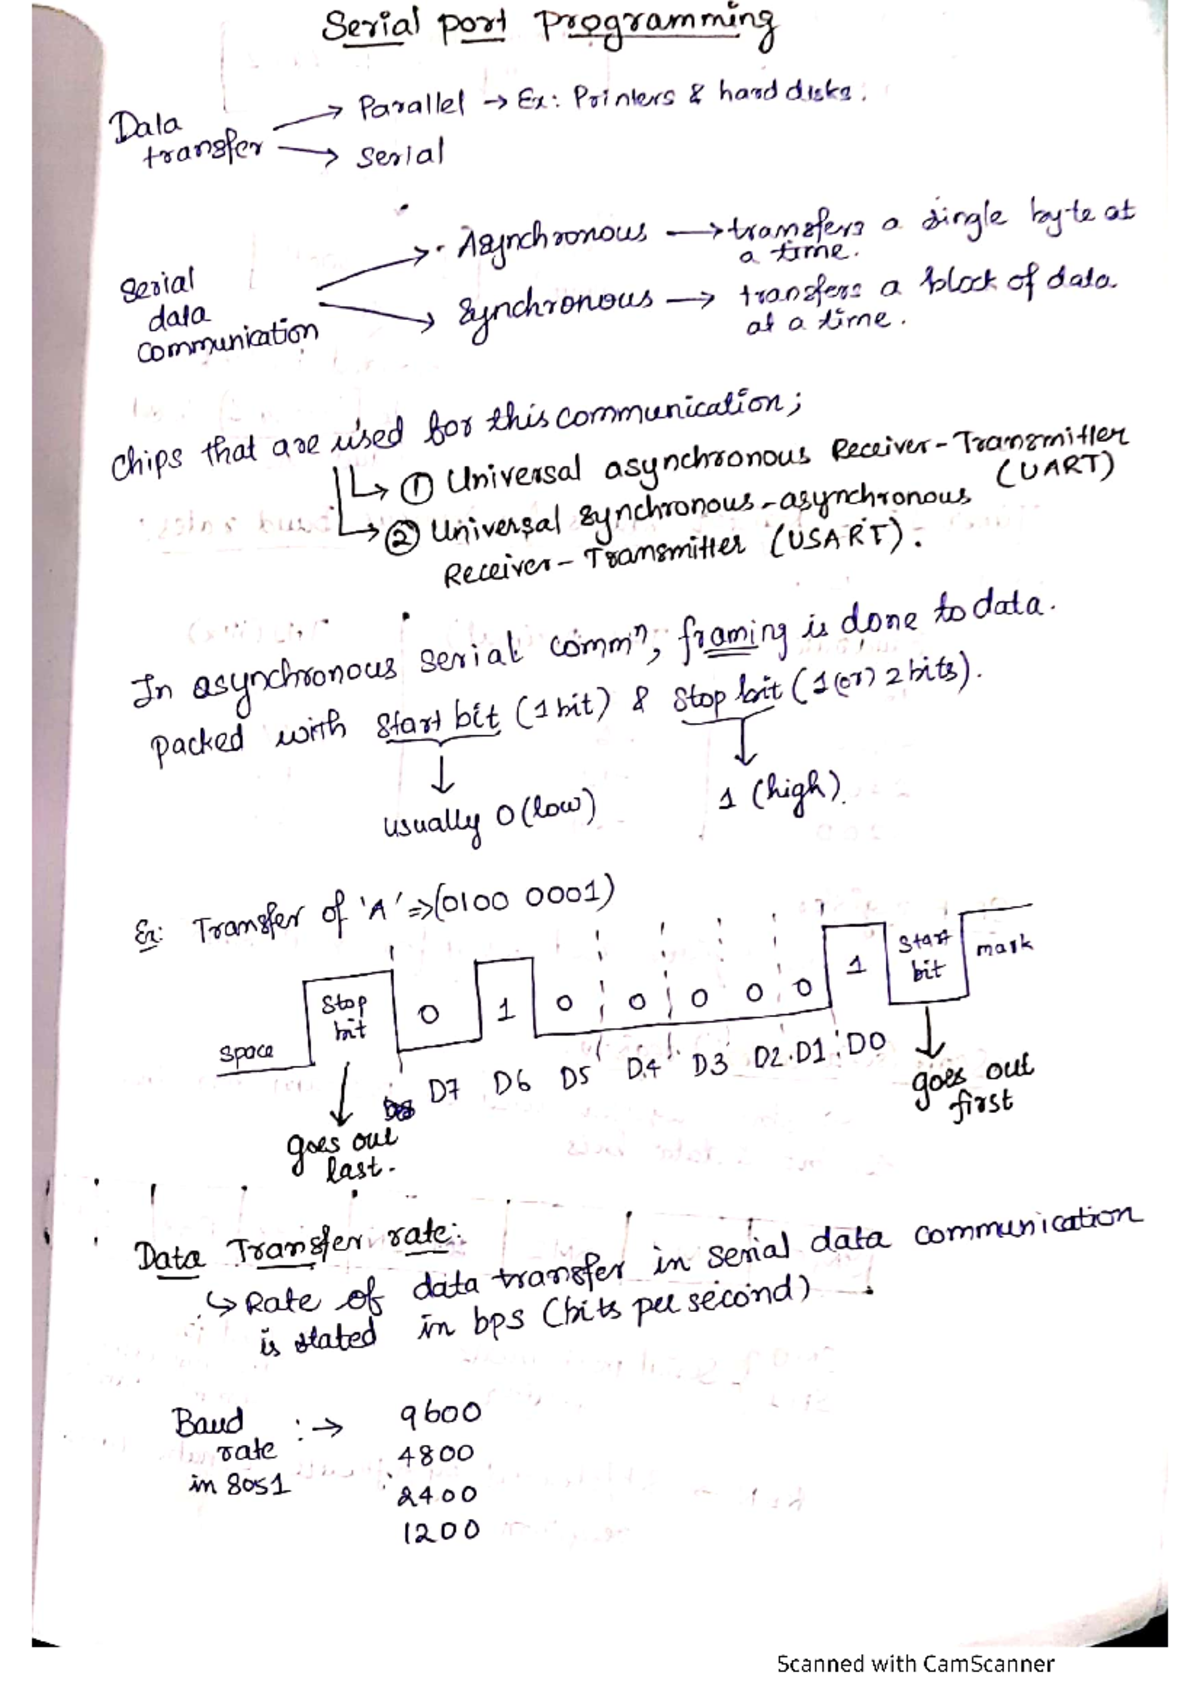 Serial port programming
Data transfer → Parallel → Ex: Printers & hard disks.
→ Serial
Serial data communication → Asynchronous → transfers a single byte at a time.
→ Synchronous → transfers a block of data at a time.
Chips that are used for this communication;
↳ ① Universal asynchronous Receiver-Transmitter (UART)
↳ ② Universal synchronous-asynchronous
Receiver-Transmitter (USART).
In asynchronous serial commⁿ, framing is done to data.
Packed with start bit (1 bit) & stop bit (1 (or) 2 bits).
usually 0 (low)
1 (high).
Ex: Transfer of 'A' ⇒ (0100 0001)
space
stop bit
0 1 0 0 0 0 0 1
start bit
mark
D7 D6 D5 D4 D3 D2 D1 D0
goes out last.
goes out first
Data Transfer rate:
↳ Rate of data transfer in serial data communication
is stated in bps (bits per second)
Baud rate in 8051 :→ 9600
4800
2400
1200
Scanned with CamScanner